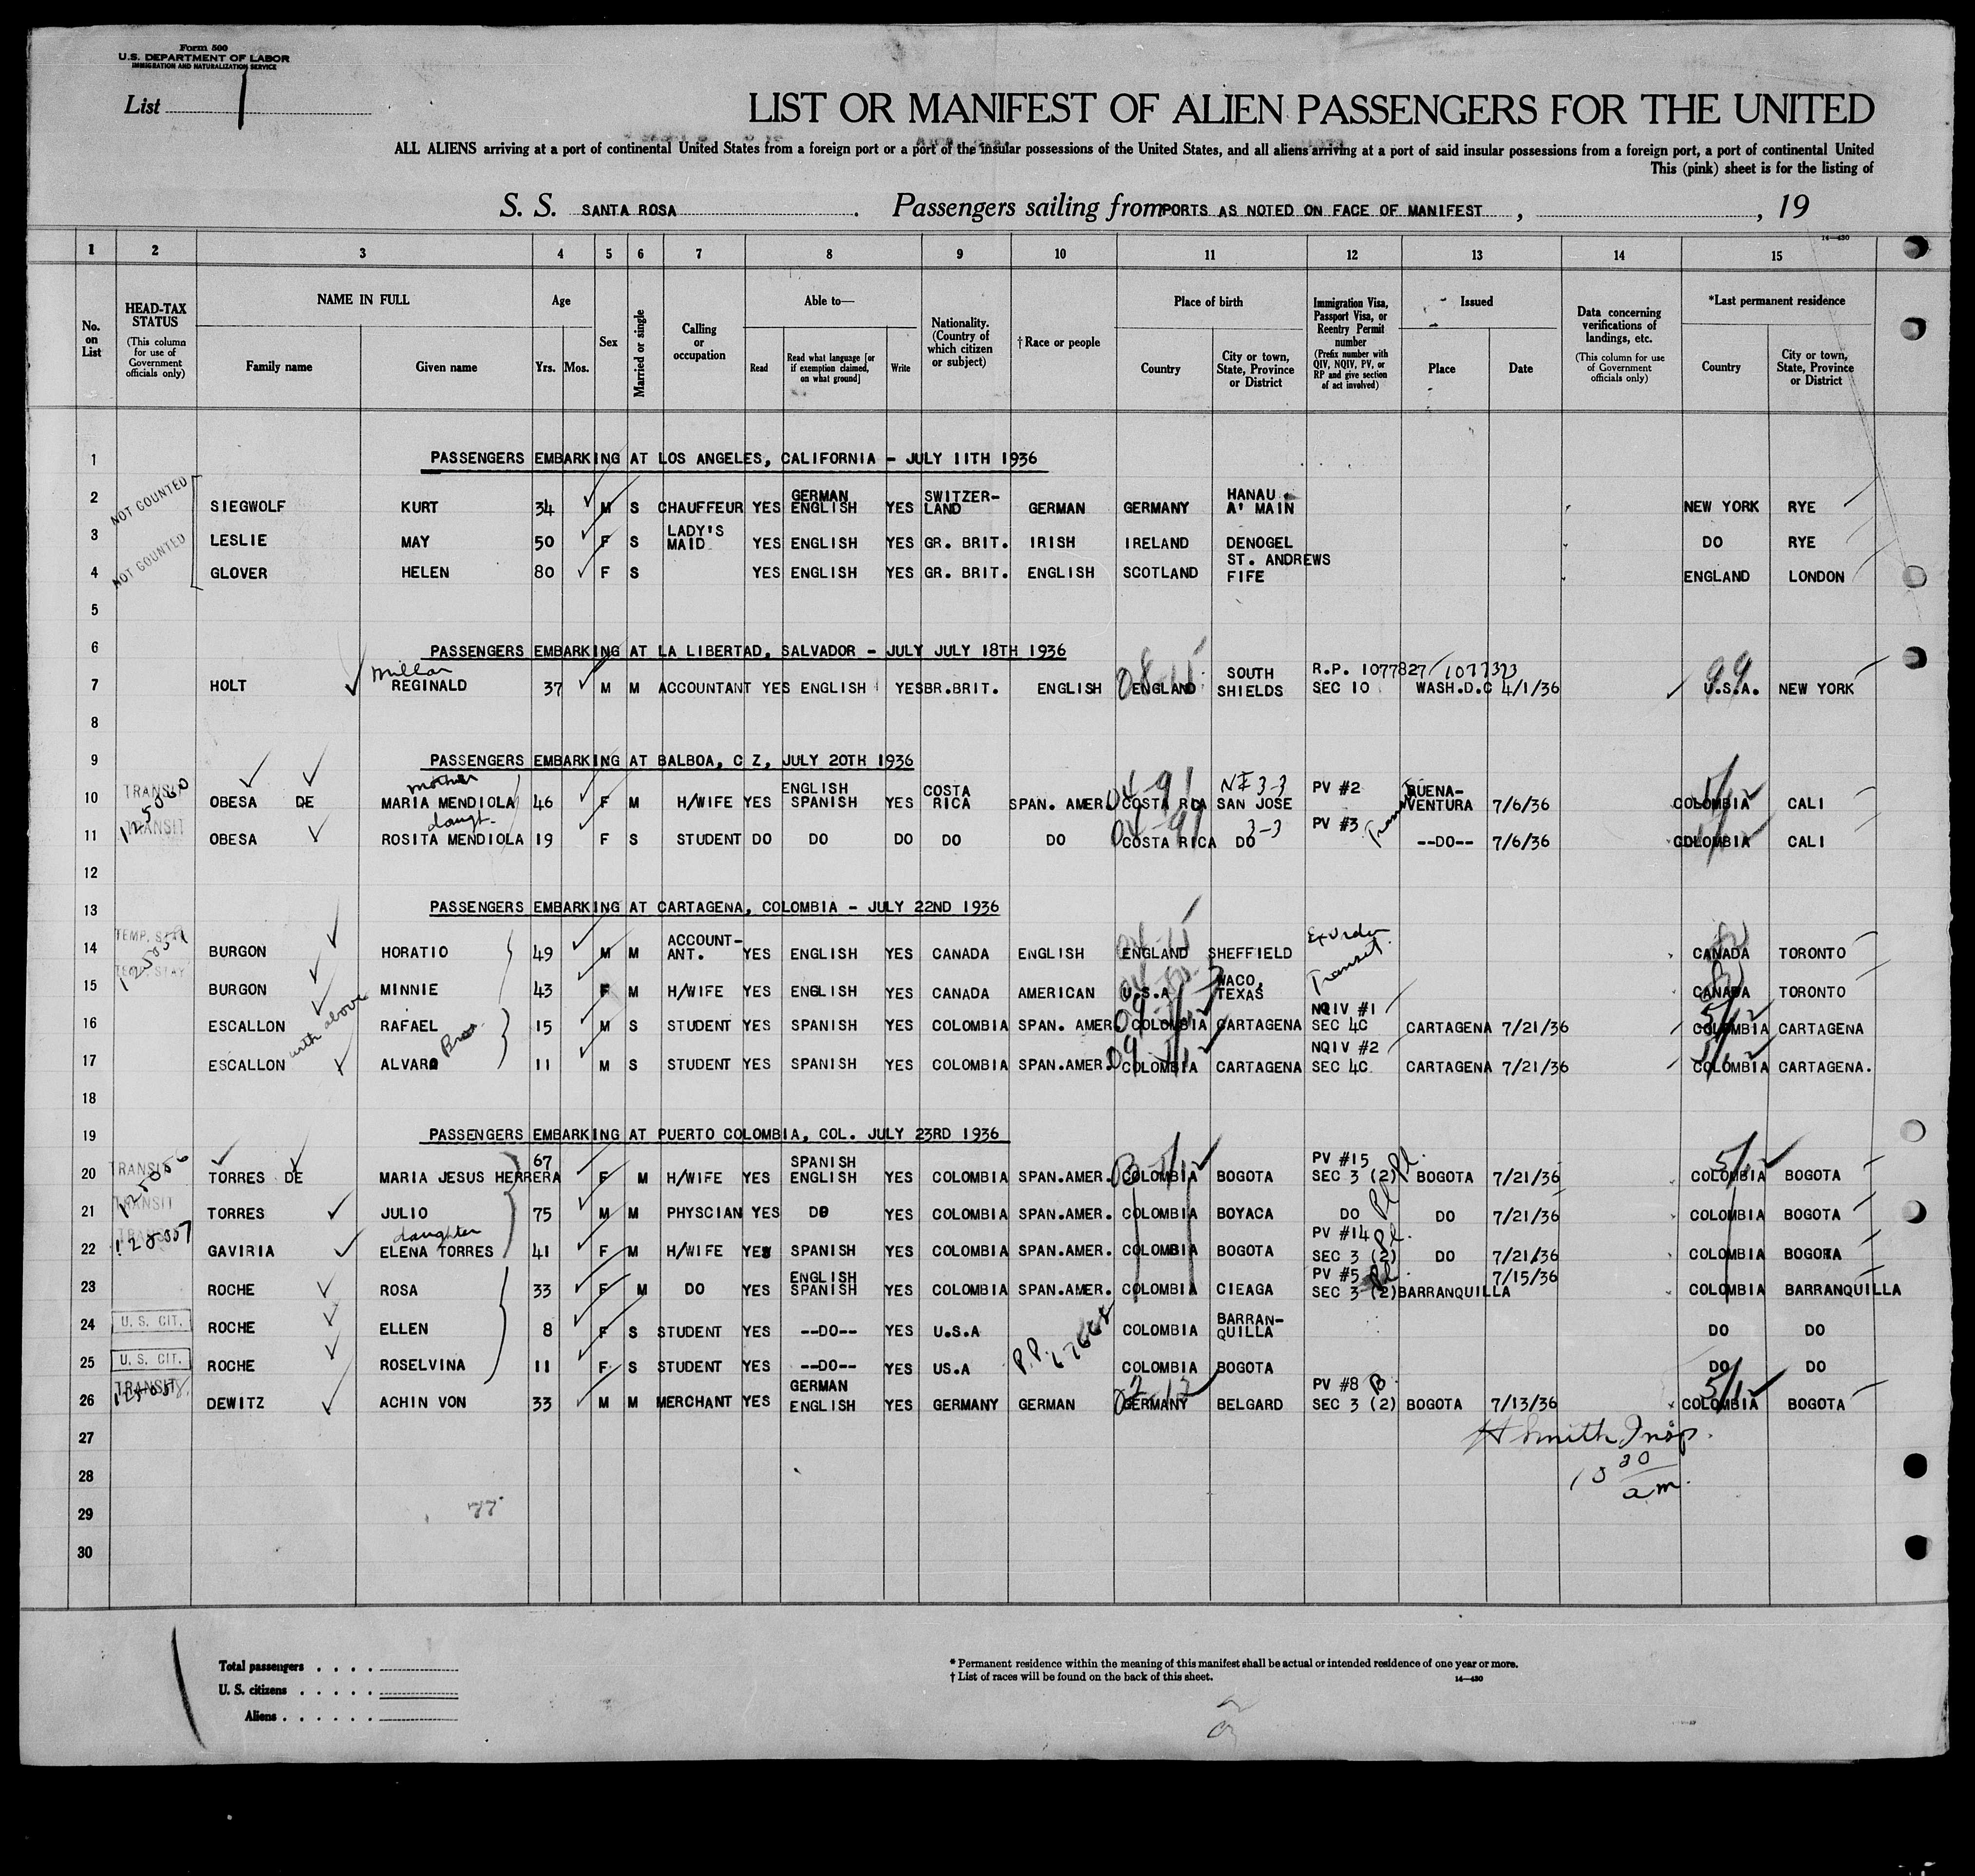 Form 500
U.S. DEPARTMENT OF LABOR
IMMIGRATION AND NATURALIZATION SERVICE
List 1
LIST OR MANIFEST OF ALIEN PASSENGERS FOR THE UNITED
ALL ALIENS arriving at a port of continental United States from a foreign port or a port of the insular possessions of the United States, and all aliens arriving at a port of said insular possessions from a foreign port, a port of continental United
This (pink) sheet is for the listing of
S. S. SANTA ROSA. Passengers sailing from PORTS AS NOTED ON FACE OF MANIFEST, , 19
14—430
1 2 3 4 5 6 7 8 9 10 11 12 13 14 15
No. on List
HEAD-TAX STATUS (This column for use of Government officials only)
NAME IN FULL
Family name Given name
Age
Yrs. Mos.
Sex
Married or single
Calling or occupation
Able to—
Read
Read what language [or if exemption claimed, on what ground]
Write
Nationality. (Country of which citizen or subject)
†Race or people
Place of birth
Country
City or town, State, Province or District
Immigration Visa, Passport Visa, or Reentry Permit number (Prefix number with QIV, NQIV, PV, or RP and give section of act involved)
Issued
Place Date
Data concerning verifications of landings, etc. (This column for use of Government officials only)
*Last permanent residence
Country
City or town, State, Province or District
1 PASSENGERS EMBARKING AT LOS ANGELES, CALIFORNIA - JULY 11TH 1936
2 NOT COUNTED SIEGWOLF KURT 34 M S CHAUFFEUR YES GERMAN ENGLISH YES SWITZER-LAND GERMAN GERMANY HANAU A' MAIN NEW YORK RYE
3 LESLIE MAY 50 F S LADY'S MAID YES ENGLISH YES GR. BRIT. IRISH IRELAND DENOGEL DO RYE
4 NOT COUNTED GLOVER HELEN 80 F S YES ENGLISH YES GR. BRIT. ENGLISH SCOTLAND ST. ANDREWS FIFE ENGLAND LONDON
5
6 PASSENGERS EMBARKING AT LA LIBERTAD, SALVADOR - JULY JULY 18TH 1936
7 HOLT Millar REGINALD 37 M M ACCOUNTANT YES ENGLISH YES BR.BRIT. ENGLISH ENGLAND SOUTH SHIELDS R.P. 1077827 1077373 SEC 10 WASH.D.C 4/1/36 99 U.S.A. NEW YORK
8
9 PASSENGERS EMBARKING AT BALBOA, C Z, JULY 20TH 1936
10 TRANSIT OBESA DE mother MARIA MENDIOLA 46 F M H/WIFE YES ENGLISH SPANISH YES COSTA RICA SPAN. AMER. 04-91 COSTA RICA SAN JOSE PV #2 BUENA-VENTURA 7/6/36 COLOMBIA CALI
11 TRANSIT OBESA daugt. ROSITA MENDIOLA 19 F S STUDENT DO DO DO DO DO 04-91 COSTA RICA 3-3 DO PV #3 --DO-- 7/6/36 COLOMBIA CALI
12
13 PASSENGERS EMBARKING AT CARTAGENA, COLOMBIA - JULY 22ND 1936
14 TEMP. STAY BURGON HORATIO 49 M M ACCOUNT-ANT. YES ENGLISH YES CANADA ENGLISH ENGLAND SHEFFIELD CANADA TORONTO
15 TEMP. STAY BURGON MINNIE 43 F M H/WIFE YES ENGLISH YES CANADA AMERICAN U.S.A WACO, TEXAS Transit CANADA TORONTO
16 ESCALLON with above RAFAEL 15 M S STUDENT YES SPANISH YES COLOMBIA SPAN. AMER. COLOMBIA CARTAGENA NQIV #1 SEC 4C CARTAGENA 7/21/36 COLOMBIA CARTAGENA
17 ESCALLON ALVARO Bros 11 M S STUDENT YES SPANISH YES COLOMBIA SPAN.AMER. COLOMBIA CARTAGENA NQIV #2 SEC 4C CARTAGENA 7/21/36 COLOMBIA CARTAGENA.
18
19 PASSENGERS EMBARKING AT PUERTO COLOMBIA, COL. JULY 23RD 1936
20 TRANSIT TORRES DE MARIA JESUS HERRERA 67 F M H/WIFE YES SPANISH ENGLISH YES COLOMBIA SPAN.AMER. COLOMBIA BOGOTA PV #15 SEC 3 (2) BOGOTA 7/21/36 COLOMBIA BOGOTA
21 TRANSIT TORRES JULIO 75 M M PHYSCIAN YES DO YES COLOMBIA SPAN.AMER. COLOMBIA BOYACA DO DO 7/21/36 COLOMBIA BOGOTA
22 TRANSIT GAVIRIA daughter ELENA TORRES 41 F M H/WIFE YES SPANISH YES COLOMBIA SPAN.AMER. COLOMBIA BOGOTA PV #14 SEC 3 (2) DO 7/21/36 COLOMBIA BOGOTA
23 ROCHE ROSA 33 F M DO YES ENGLISH SPANISH YES COLOMBIA SPAN.AMER. COLOMBIA CIEAGA PV #5 SEC 3 (2) BARRANQUILLA 7/15/36 COLOMBIA BARRANQUILLA
24 U. S. CIT. ROCHE ELLEN 8 F S STUDENT YES --DO-- YES U.S.A COLOMBIA BARRAN-QUILLA DO DO
25 U. S. CIT. ROCHE ROSELVINA 11 F S STUDENT YES --DO-- YES US.A COLOMBIA BOGOTA DO DO
26 TRANSIT DEWITZ ACHIN VON 33 M M MERCHANT YES GERMAN ENGLISH YES GERMANY GERMAN GERMANY BELGARD PV #8 SEC 3 (2) BOGOTA 7/13/36 COLOMBIA BOGOTA
27 H Smith Insp.
28
29 77
30
Total passengers
U. S. citizens
Aliens
* Permanent residence within the meaning of this manifest shall be actual or intended residence of one year or more.
† List of races will be found on the back of this sheet.
14—430